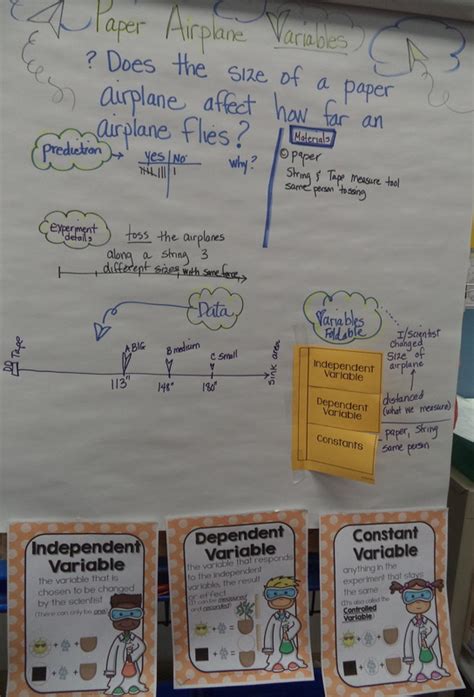 Paper Airplane Variables
? Does the size of a paper
airplane affect how far an
airplane flies?
Prediction
Yes No
Why?
Materials
paper
String & Tape Measure tool
same person tossing
Experiment
details
toss the airplanes
along a string 3
different sizes with same force
Data
Tape
A BIG
B medium
C small
113"
148"
180"
Sink area
Variables
Foldable
I/Scientist
changed
Size of
airplane
Independent
Variable
Dependent
Variable
distanced
(what we measure)
Constants
paper, string
same person
Independent
Variable
The variable that is
chosen to be changed
by the scientist!
(There can only be one!)
Dependent
Variable
The variable that responds
to the independent
variable, the result
or effect
(It can be measured
and recorded!)
Constant
Variable
anything in the
experiment that stays
the same
(It's also called the
Controlled
Variable)